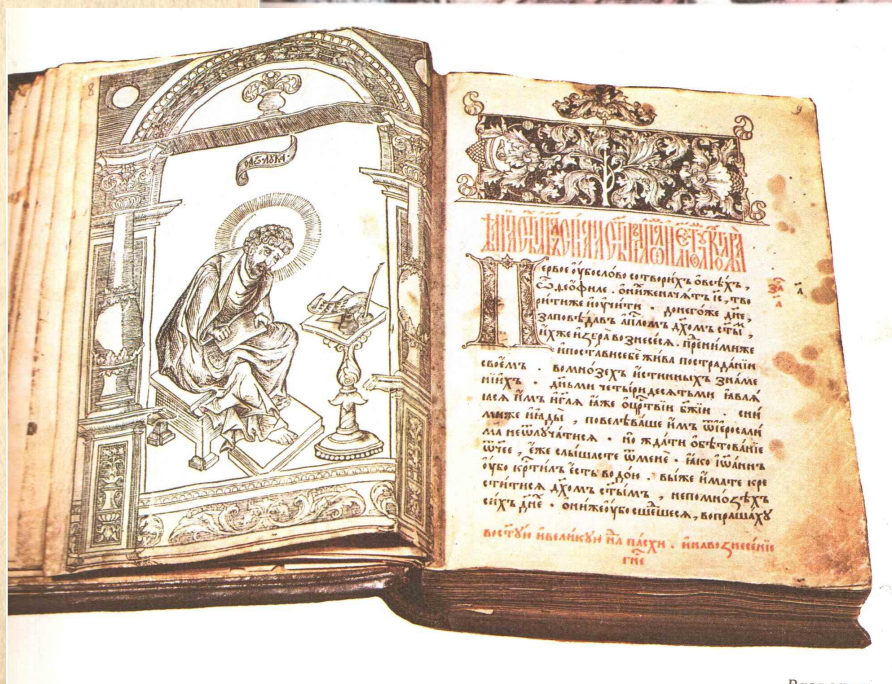 8
9
Первое оубо слово сотворихъ о всѣхъ,
ѽ Ѳеофиле. о нихже начатъ і҃с, тво
рити же и оучити . до негоже дн҃е,
заповѣдавъ ап҃лѡмъ дх҃омъ ст҃ы
ихже избра вознесеся. пред нимиже
и постави себе жива по страдании
своемъ . во мнозехъ истинныхъ знаме
ниихъ . дньми четыридесятьми ꙗвлѧ
ꙗсѧ имъ и гл҃ѧ ꙗже о цр҃твіи бж҃іи . с ни
миже и ꙗды , повелѣваше имъ ѿ іерⷭ҇али
ма не ѿлучатисѧ . но ждати обѣтованіе
ѿчее , еже слышасте ѿ мене . ꙗко іѡаннъ
оубо крⷭ҇тилъ есть водою . вы же имате кре
ститисѧ дх҃омъ ст҃ымъ , не по мноѕѣхъ
сихъ дн҃е . они же оубо сшешесѧ, вопрашахꙋ
во ст҃ꙋю и великꙋю нⷣлѧ пасхи . и на вознесеніе
гн҃е